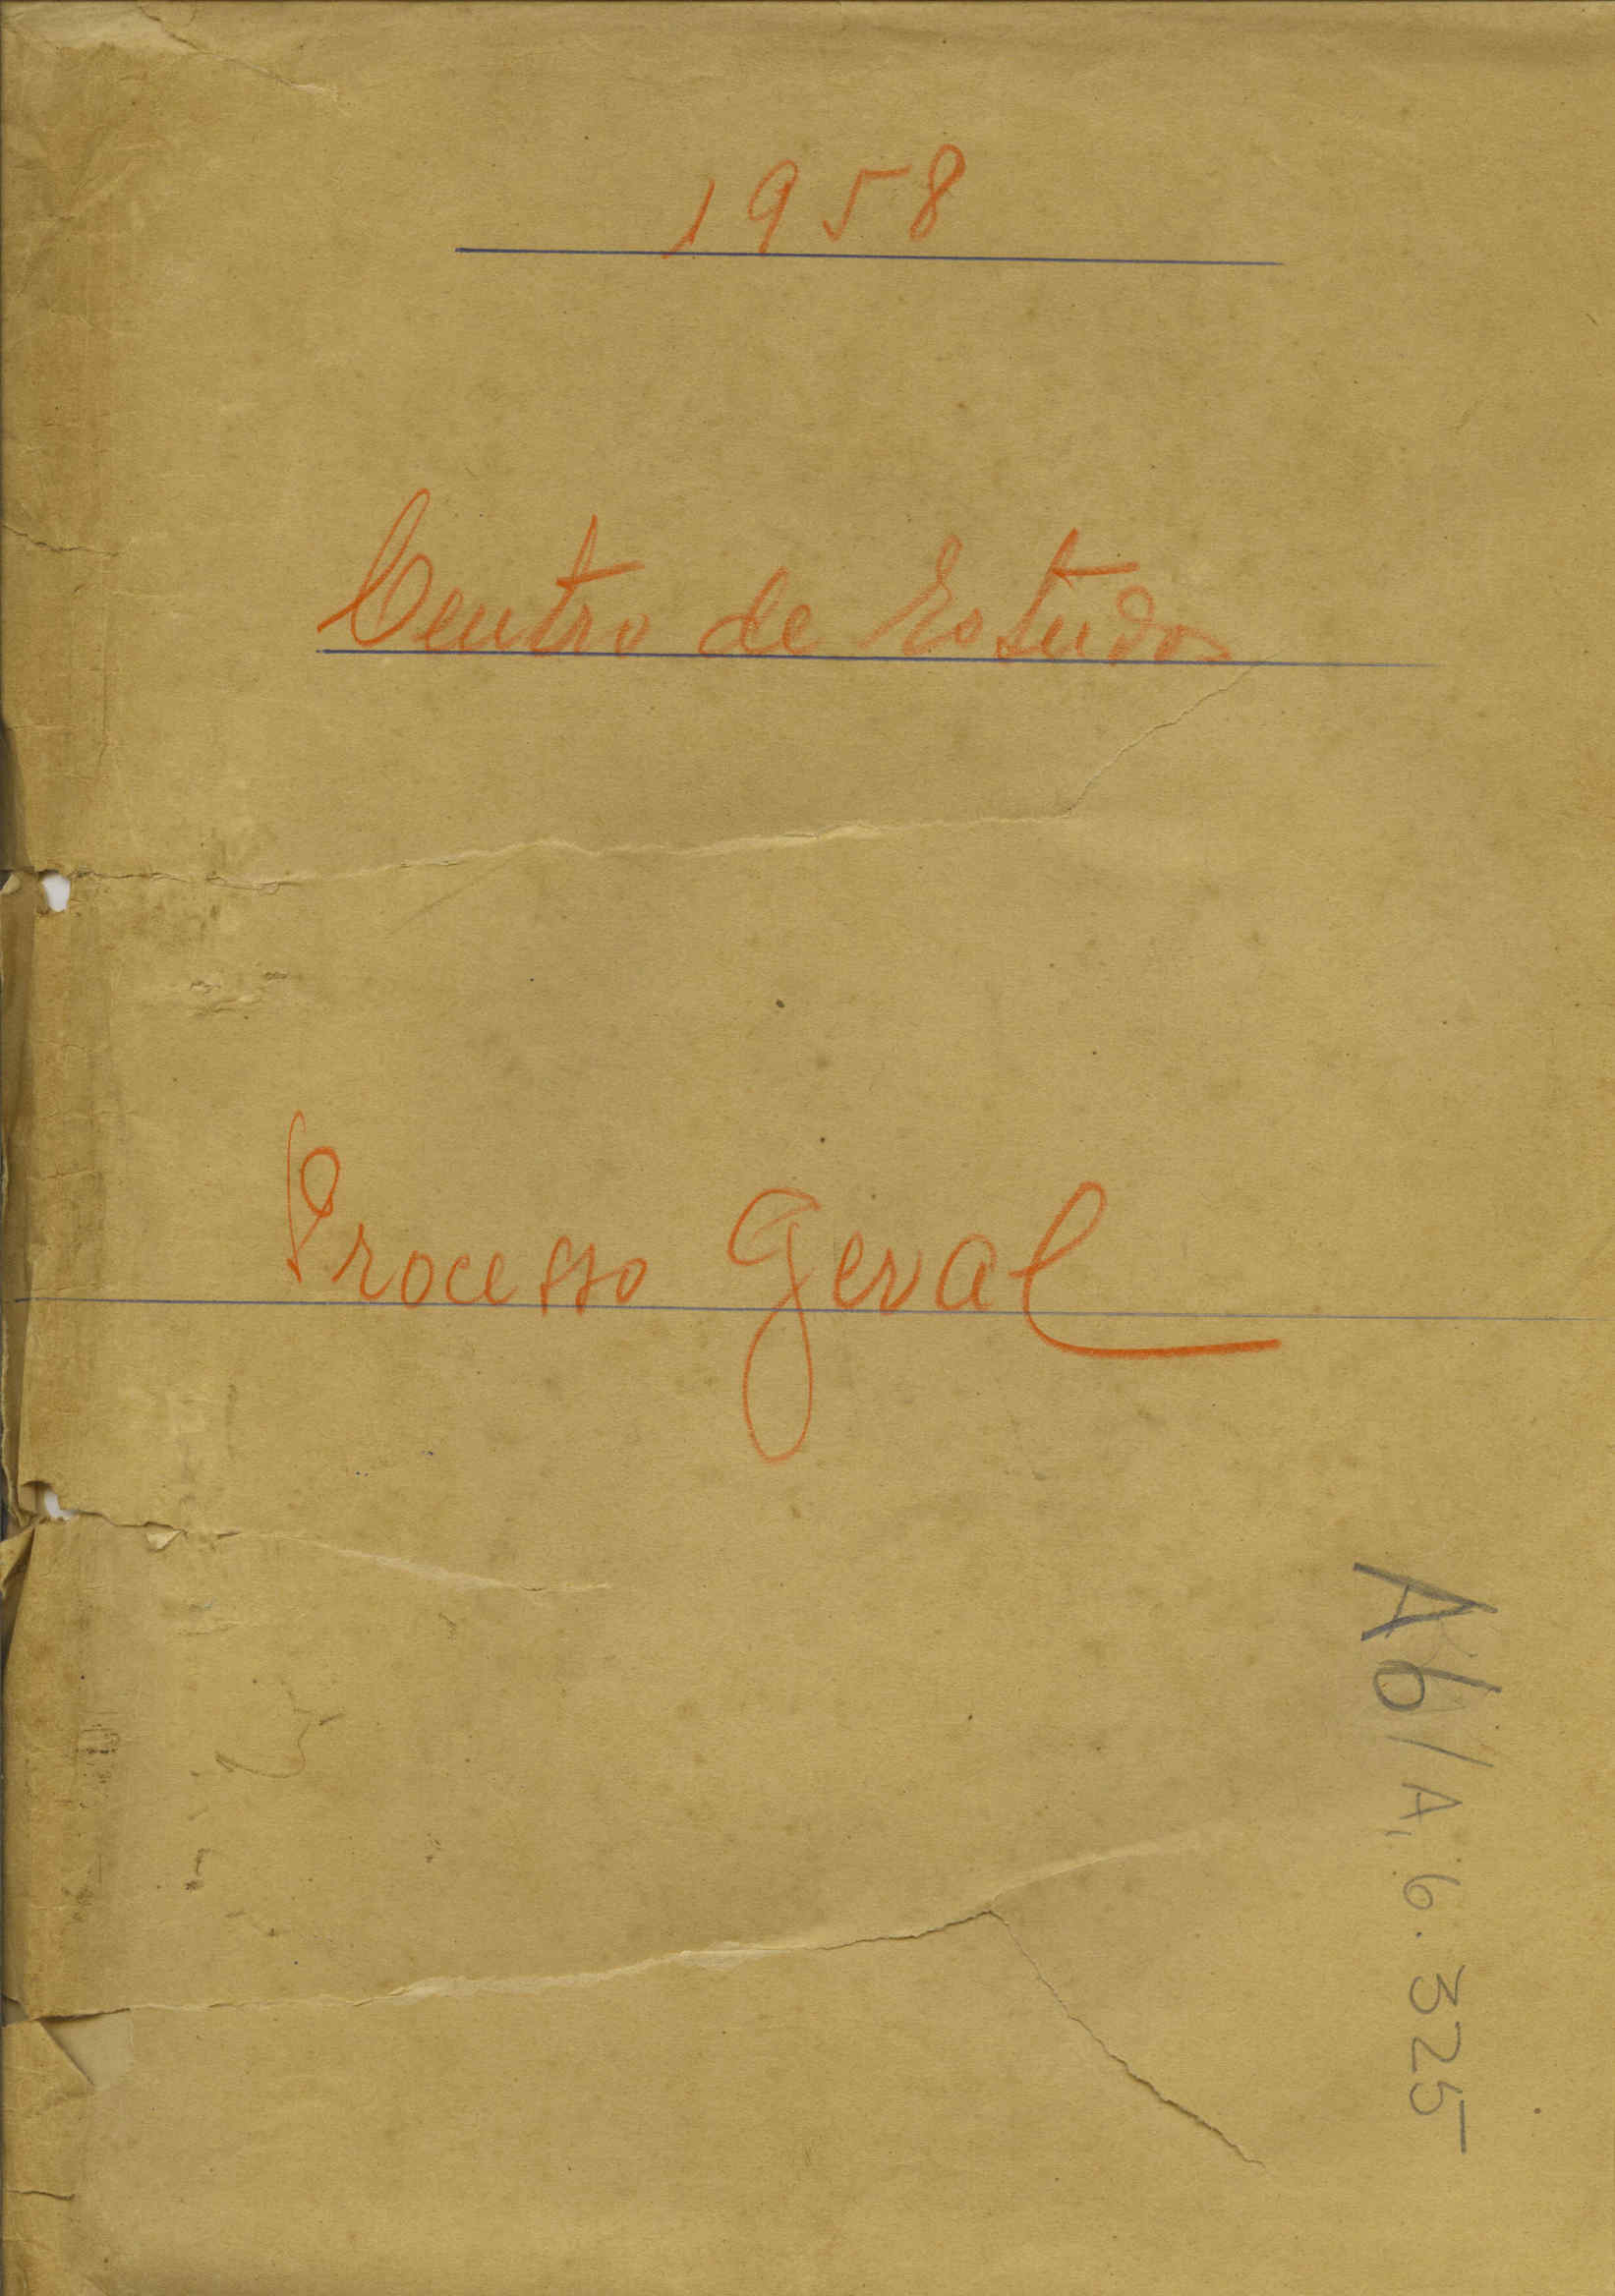 1958
Centro de Estudos
Processo Geral
A6/A, 6. 325